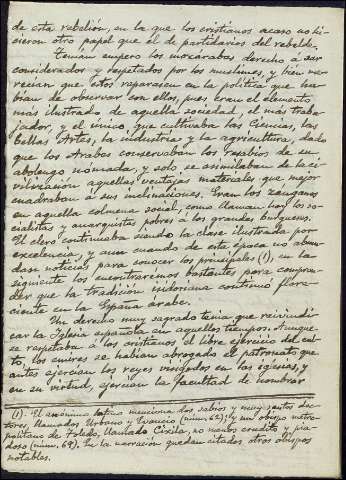 de esta rebelión, en la que los cristianos acaso no hi-
cieron otro papel que el de partidarios del rebelde.
Tenían empero los mozárabes derecho á ser
considerados y respetados por los muslimes, y bien me-
recían que éstos reparasen en la política que ha-
bían de observar con ellos, pues eran el elemento
mas ilustrado de aquella sociedad, el más traba-
jador, y el único que cultivaba las Ciencias, las
bellas Artes, la industria y la agricultura, dado
que los Arabes conservaban los resabios de su
abolengo nomada, y solo se asimilaban de la ci-
vilización aquellas ventajas materiales que mejor
cuadraban á sus inclinaciones. Eran los zánganos
en aquella colmena social, como llaman hoy los so-
cialistas y anarquistas pobres á los grandes burgueses.
El clero continuaba siendo la clase ilustrada por
excelencia, y aun cuando de esta época no abun-
dan noticias para conocer los principales (1), en la
siguiente los encontraremos bastantes para compren-
der que la tradición isidoriana continuó flore-
ciente en la España árabe.
Un derecho muy sagrado tenía que reivindi-
car la Iglesia española en aquellos tiempos. Aunque
se respetaba á los cristianos el libre ejercicio del cul-
to, los emires se habían abrogado el patronato que
antes ejercían los reyes visigodos en las iglesias, y
en su virtud, ejercían la facultad de nombrar
(1). El anónimo latino menciona dos sabios y muy santos doc-
tores, llamados Urbano y Evancio (núm. 62); y un obispo metro-
politano de Toledo, llamado Cixila, no menos erudito y pia-
doso (núm. 69). En la narración quedan citados otros obispos
notables.